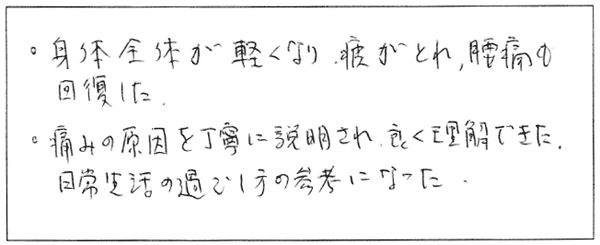 。身体全体が軽くなり、疲がとれ,腰痛も
回復した.
。痛みの原因を丁寧に説明され、良く理解できた.
日常生活の過ごし方の参考になった.